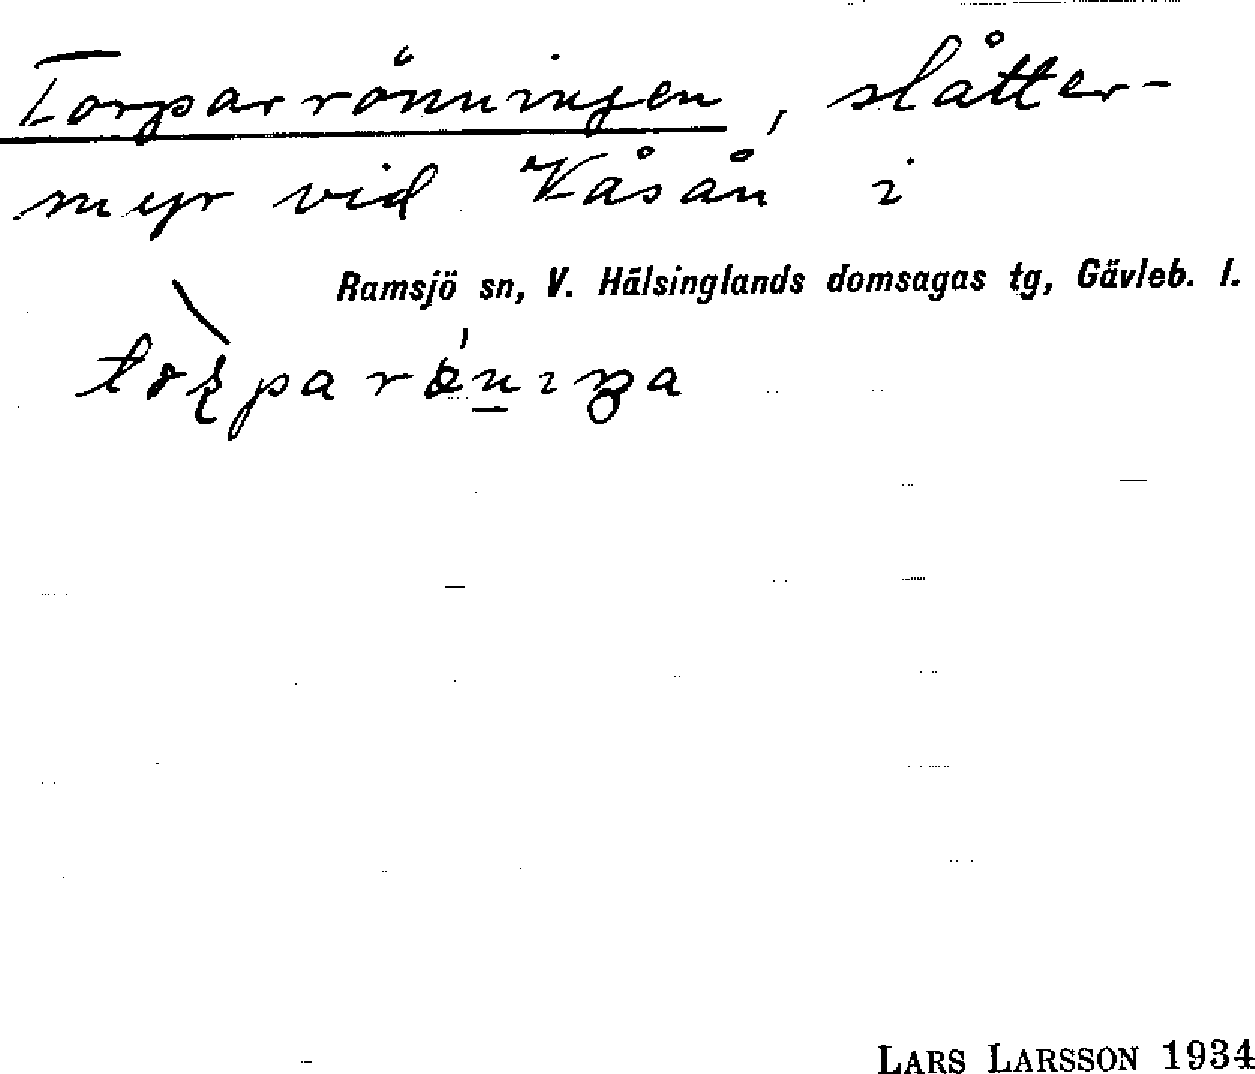 Torparrönningen, slåtter-
myr vid Kåsån i
Ramsjö sn, V. Hälsinglands domsagas tg, Gävleb. l.
LARS LARSSON 1934